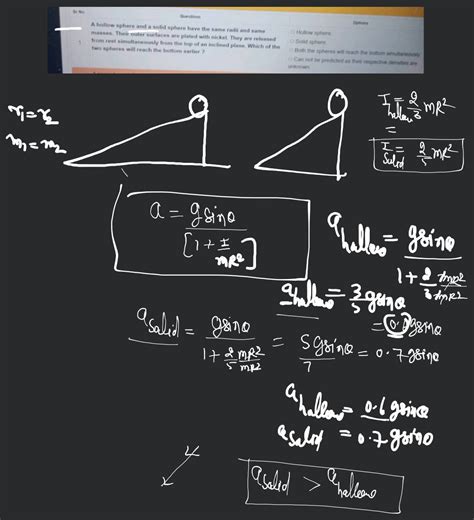 Sr No
Questions
Options
A hollow sphere and a solid sphere have the same radii and same
masses. Their outer surfaces are plated with nickel. They are released
from rest simultaneously from the top of an inclined plane. Which of the
two spheres will reach the bottom earlier ?
1
Hollow sphere
Solid sphere
Both the spheres will reach the bottom simultaneously
Can not be predicted as their respective densities are
unknown.
r₁ = r₂
m₁ = m₂
I hollow = 2/3 mR²
=
I Solid = 2/5 mR²
a = gsinθ / [1 + I/mR²]
a hollow = gsinθ / 1 + 2/3 mR²/mR²
a hollow = 3/5 gsinθ
= 0.6 gsinθ
a solid = gsinθ / 1 + 2/5 mR²/mR² = 5gsinθ/7 = 0.7gsinθ
a hollow = 0.6 gsinθ
a solid = 0.7 gsinθ
a solid > a hollow